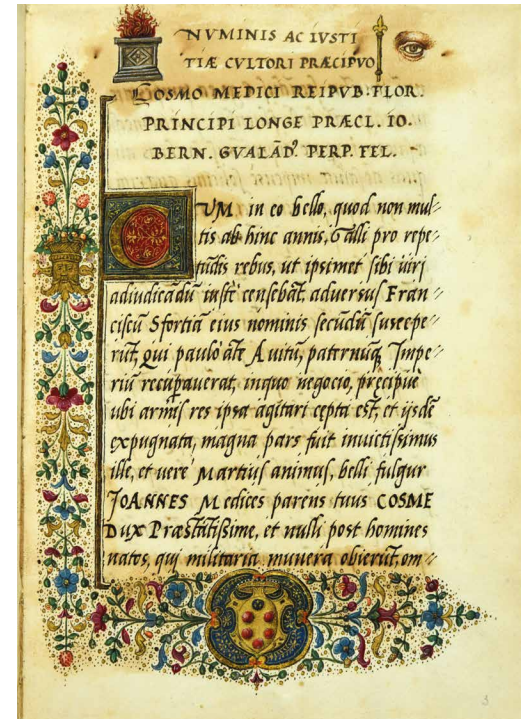 NVMINIS AC IVSTI
TIÆ CVLTORI PRÆCIPVO
COSMO MEDICI REIPVB. FLOR.
PRINCIPI LONGE PRÆCL. IO.
BERN. GVALĀD. PERP. FEL.
CVM in eo bello, quod non mul-
tis ab hinc annis, Galli pro repe-
tūdis rebus, ut ipsimet sibi uiri
adiudicādū iustè censebāt, aduersus Fran-
ciscū Sfortiā eius nominis secūdū suscepe-
rūt, qui paulo āte Auitū, paternūq, Impe-
riū recuperauerat, inquo negocio, precipuè
ubi armis res ipsa agitari cepta est, et ijsdē
expugnata, magna pars fuit inuictissimus
ille, et uerè Martius animus, belli fulgur
JOANNES Medices parens tuus COSME
DUX Præstātissime, et nulli post homines
natos, qui militaria munera obierūt, om-
3